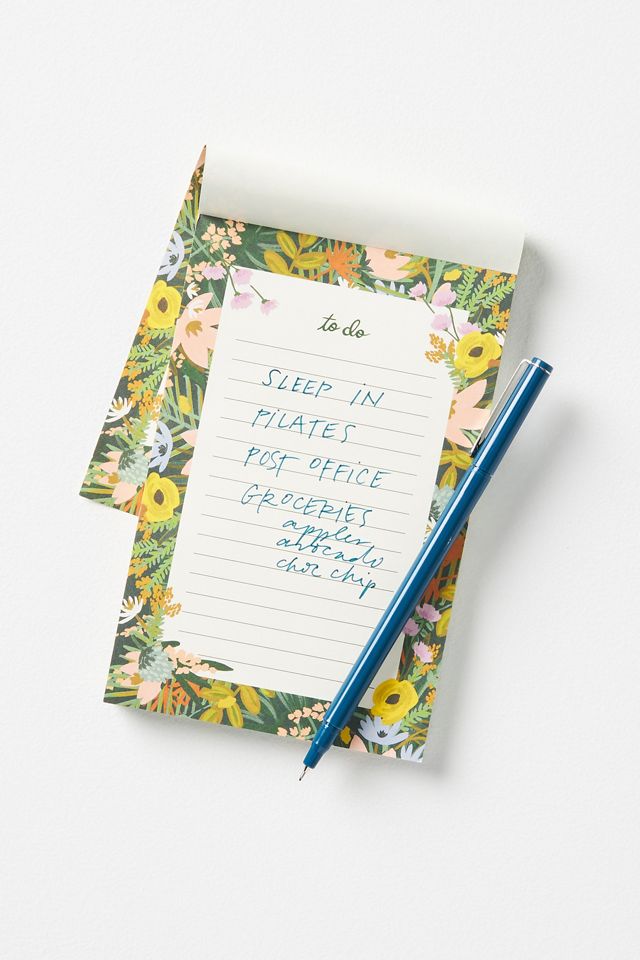 to do
SLEEP IN
PILATES
POST OFFICE
GROCERIES
apples
avocado
choc chip